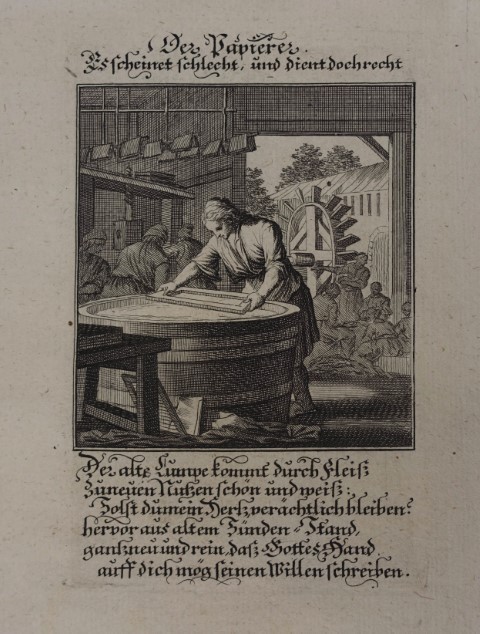 Der Papierer.
Es scheinet schlecht, und dient doch recht
Der alte Lumpe kommt durch Fleiß
Zu neuen Nutzen schön und weiß:
Solst du mein Hertz verächtlich bleiben?
hervor aus altem Sünden-Stand,
gantz neu und rein, daß Gottes Hand
auff dich mög seinen Willen schreiben.